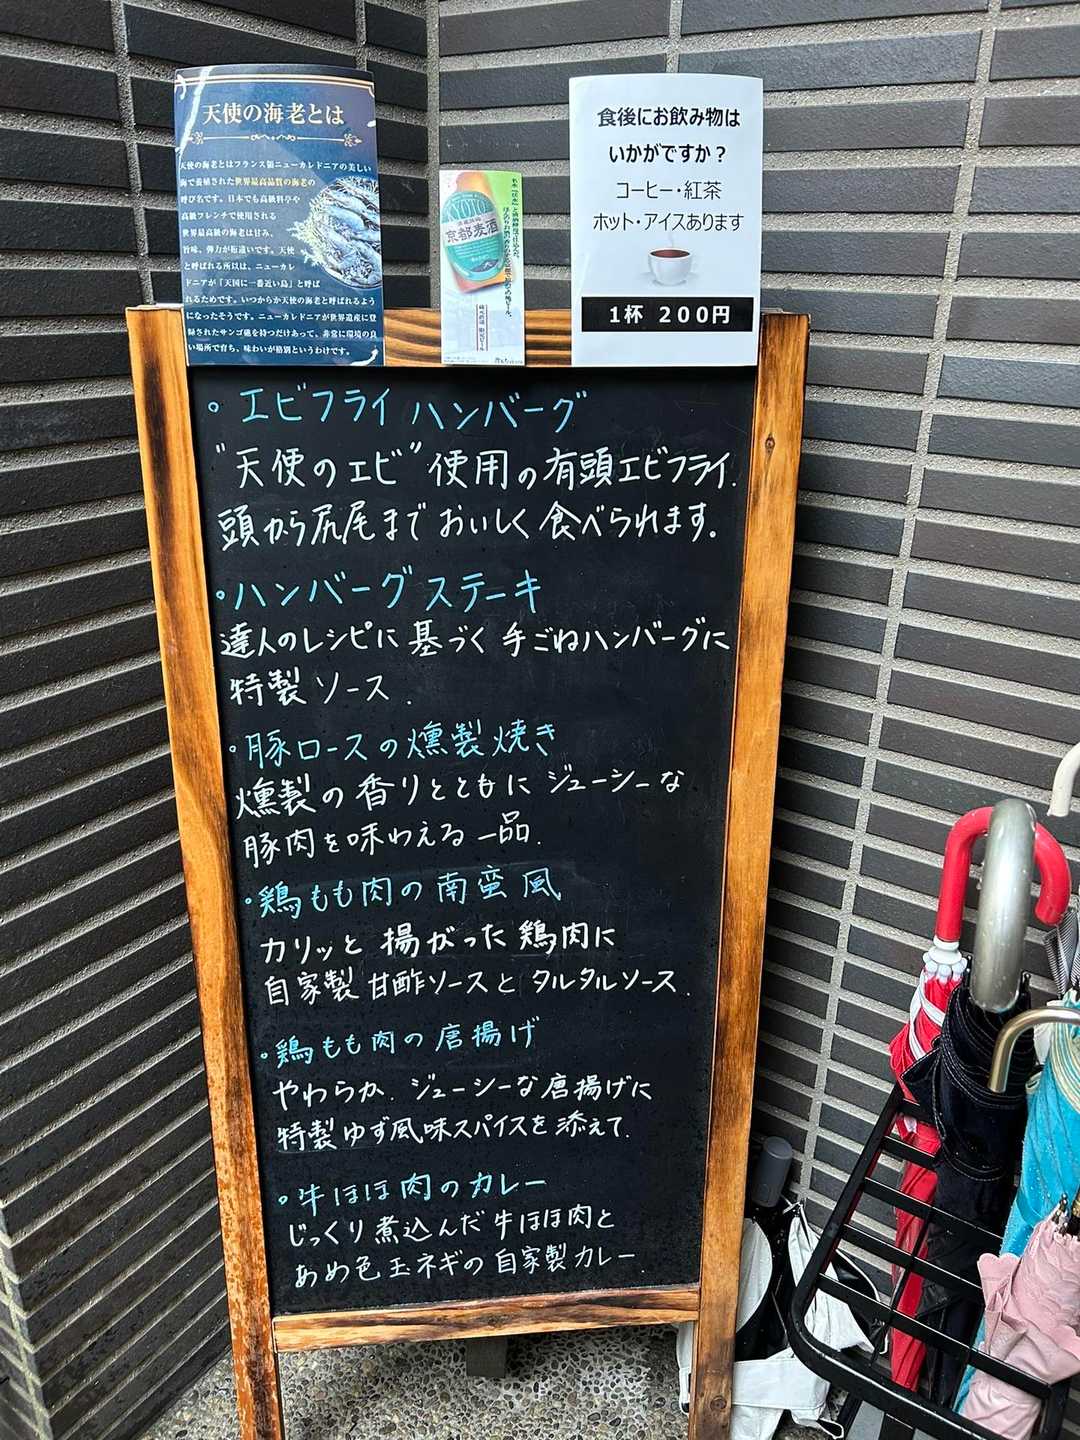 天使の海老とは
天使の海老とはフランス領ニューカレドニアの美しい
海で養殖された世界最高品質の海老の
呼び名です。日本でも高級料亭や
高級フレンチで使用される
世界最高級の海老は甘み、
旨味、弾力が桁違いです。天使
と呼ばれる所以は、ニューカレ
ドニアが「天国に一番近い島」と呼ば
れるためです。いつからか天使の海老と呼ばれるよう
になったそうです。ニューカレドニアが世界遺産に登
録されたサンゴ礁を持つだけあって、非常に環境の良
い場所で育ち、味わいが格別というわけです。
KYOTO
京都麦酒
食後にお飲み物は
いかがですか？
コーヒー・紅茶
ホット・アイスあります
1杯 200円
・エビフライ ハンバーグ
"天使のエビ"使用の有頭エビフライ.
頭から尻尾まで おいしく 食べられます。
・ハンバーグ ステーキ
達人のレシピに 基づく 手ごねハンバーグに
特製 ソース.
・豚ロースの燻製焼き
燻製の 香りとともに ジューシーな
豚肉を味わえる 一品.
・鶏もも肉の 南蛮 風
カリッと 揚がった 鶏肉に
自家製 甘酢ソースと タルタルソース.
・鶏もも肉の 唐揚げ
やわらか. ジューシーな 唐揚げに
特製 ゆず風味スパイスを 添えて.
・牛ほほ肉のカレー
じっくり 煮込んだ 牛ほほ肉と
あめ色玉ネギの 自家製 カレー.